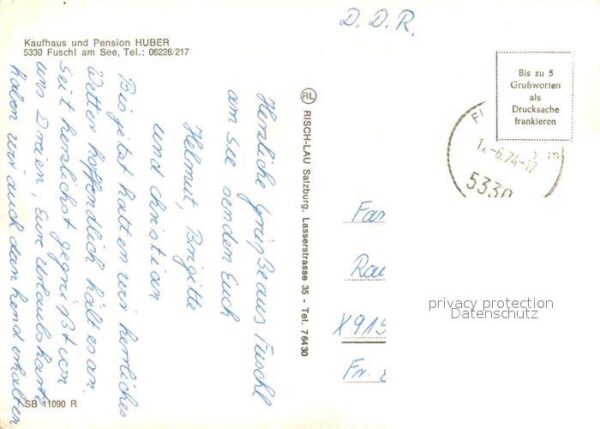 D.D.R.
Kaufhaus und Pension HUBER
5330 Fuschl am See, Tel.: 06226/217
Bis zu 5
Grußworten
als
Drucksache
frankieren
-6.74-17
5330
Herzliche Grüße aus Fuschl
am See senden Euch
Helmut, Brigitte
und Christian
Bis jetzt hatten wir herrliches
Wetter hoffendlich hält es an.
Seit herzlichst gegrüßt von
uns Dreien, Eure Urlaubskarte
haben wir auch dankend erhalten
RL RISCH-LAU Salzburg, Lasserstrasse 35 - Tel. 76430
Fam
Rau
X915
Fr.
privacy protection
Datenschutz
SB 11090 R